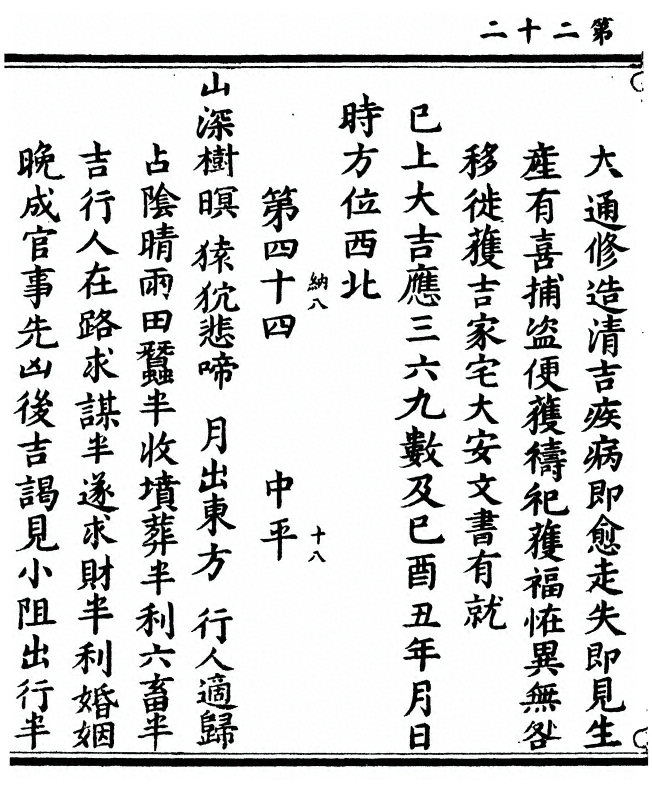 第二十二
大通修造清吉疾病即愈走失即見生
產有喜捕盜便獲禱祀獲福恠異無咎
移徙獲吉家宅大安文書有就
已上大吉應三六九數及巳酉丑年月日
時方位西北
納八
第四十四 中平
十八
山深樹暝 猿狖悲啼 月出東方 行人適歸
占陰晴雨田蠶半收墳葬半利六畜半
吉行人在路求謀半遂求財半利婚姻
晚成官事先凶後吉謁見小阻出行半